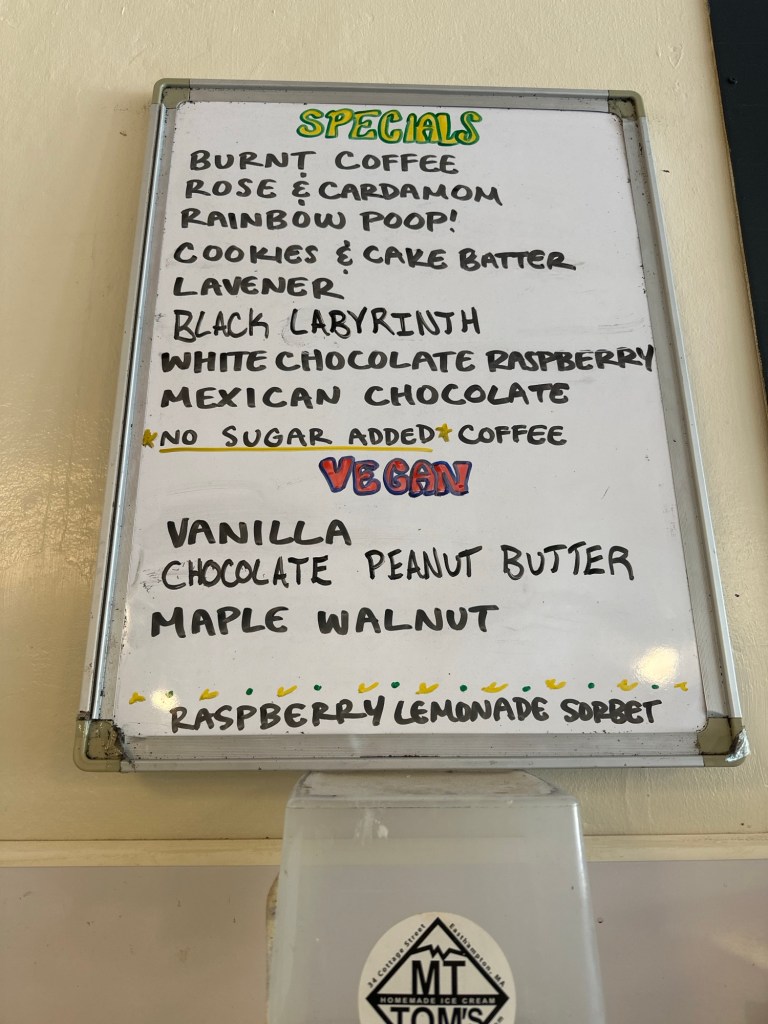 SPECIALS
BURNT COFFEE
ROSE & CARDAMOM
RAINBOW POOP!
COOKIES & CAKE BATTER
LAVENER
BLACK LABYRINTH
WHITE CHOCOLATE RASPBERRY
MEXICAN CHOCOLATE
*NO SUGAR ADDED* COFFEE
VEGAN
VANILLA
CHOCOLATE PEANUT BUTTER
MAPLE WALNUT
RASPBERRY LEMONADE SORBET
34 Cottage Street Easthampton, MA
MT
HOMEMADE ICE CREAM
TOM'S